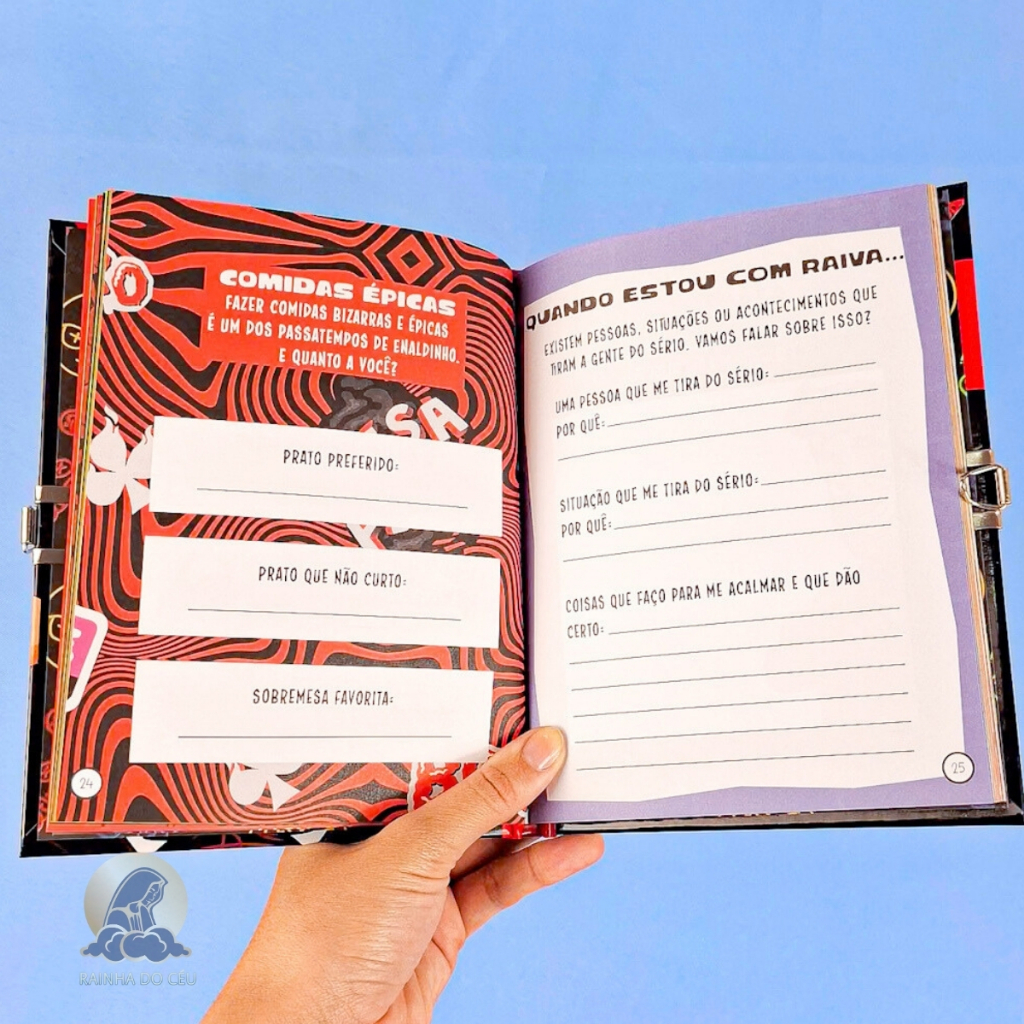 COMIDAS ÉPICAS
FAZER COMIDAS BIZARRAS E ÉPICAS
É UM DOS PASSATEMPOS DE ENALDINHO.
E QUANTO A VOCÊ?
PRATO PREFERIDO:
PRATO QUE NÃO CURTO:
SOBREMESA FAVORITA:
24
QUANDO ESTOU COM RAIVA...
EXISTEM PESSOAS, SITUAÇÕES OU ACONTECIMENTOS QUE
TIRAM A GENTE DO SÉRIO. VAMOS FALAR SOBRE ISSO?
UMA PESSOA QUE ME TIRA DO SÉRIO:
POR QUÊ:
SITUAÇÃO QUE ME TIRA DO SÉRIO:
POR QUÊ:
COISAS QUE FAÇO PARA ME ACALMAR E QUE DÃO
CERTO:
25
RAINHA DO CÉU